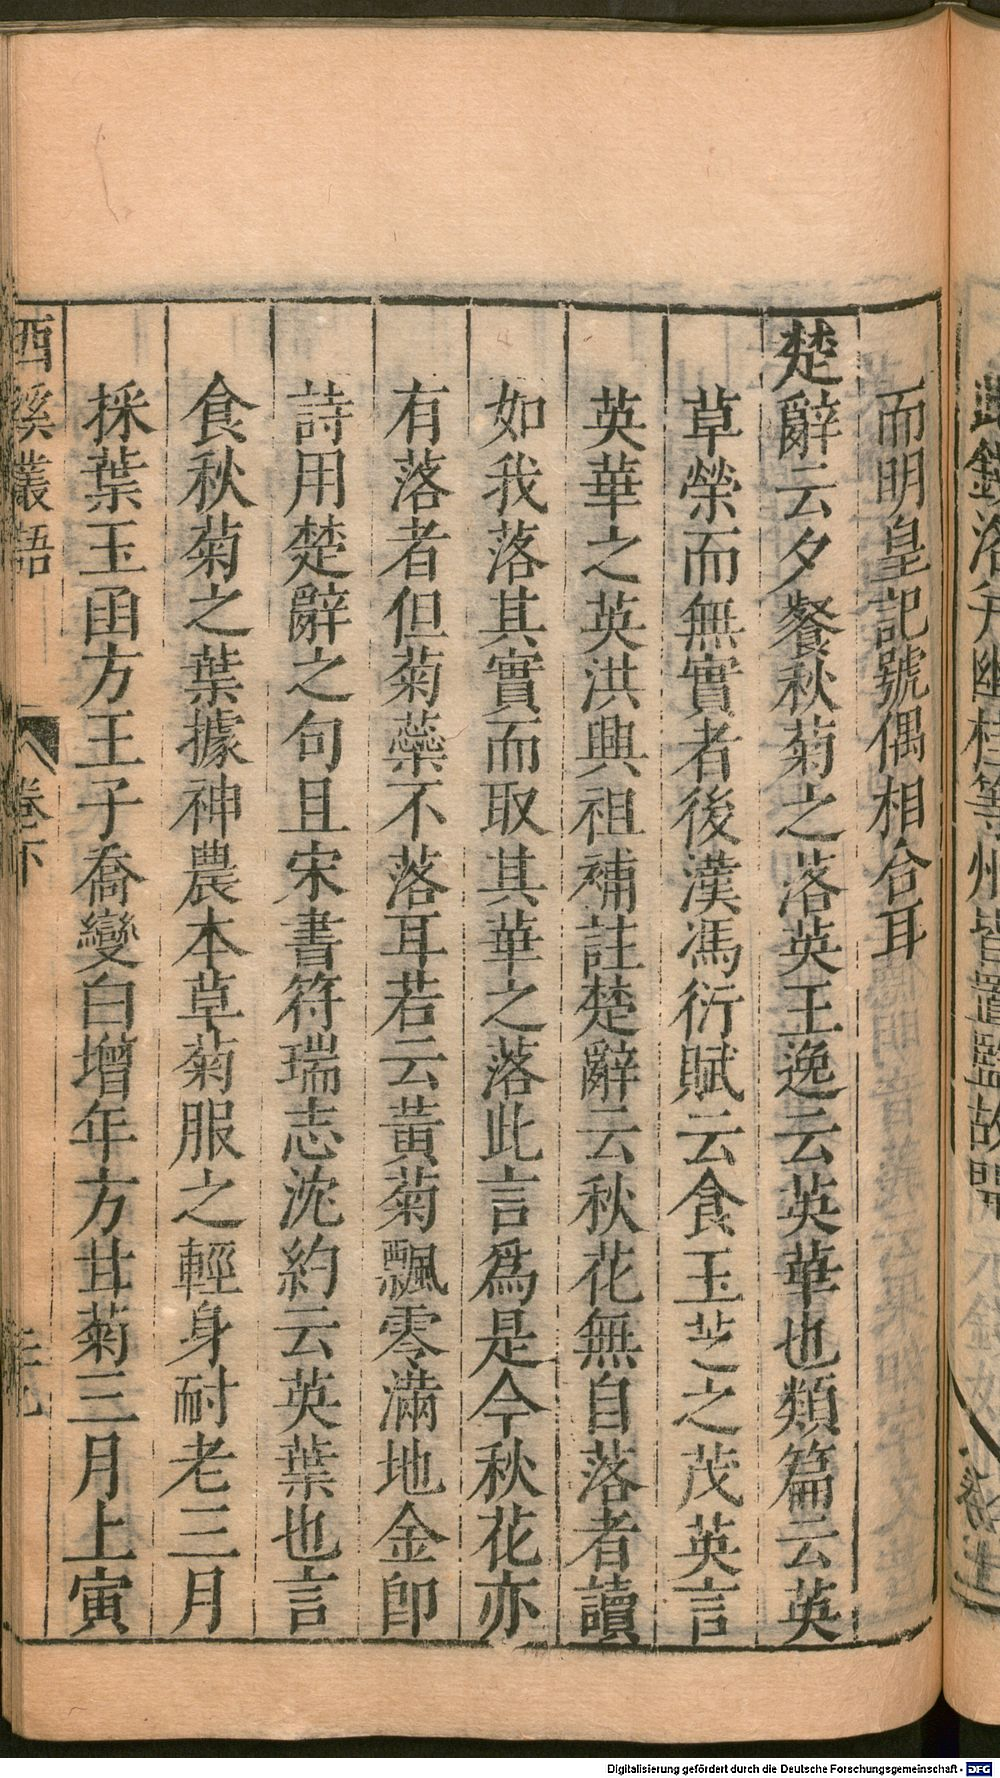 而明皇記號偶相合耳
楚辭云夕餐秋菊之落英王逸云英華也類篇云英
草榮而無實者後漢馮衍賦云食玉芝之茂英言
英華之英洪興祖補註楚辭云秋花無自落者讀
如我落其實而取其華之落此言爲是今秋花亦
有落者但菊蘂不落耳若云黃菊飄零滿地金即
詩用楚辭之句且宋書符瑞志沈約云英葉也言
食秋菊之葉據神農本草菊服之輕身耐老三月
採葉玉函方王子喬變白增年方甘菊三月上寅
西溪叢語
卷下
Digitalisierung gefördert durch die Deutsche Forschungsgemeinschaft - DFG